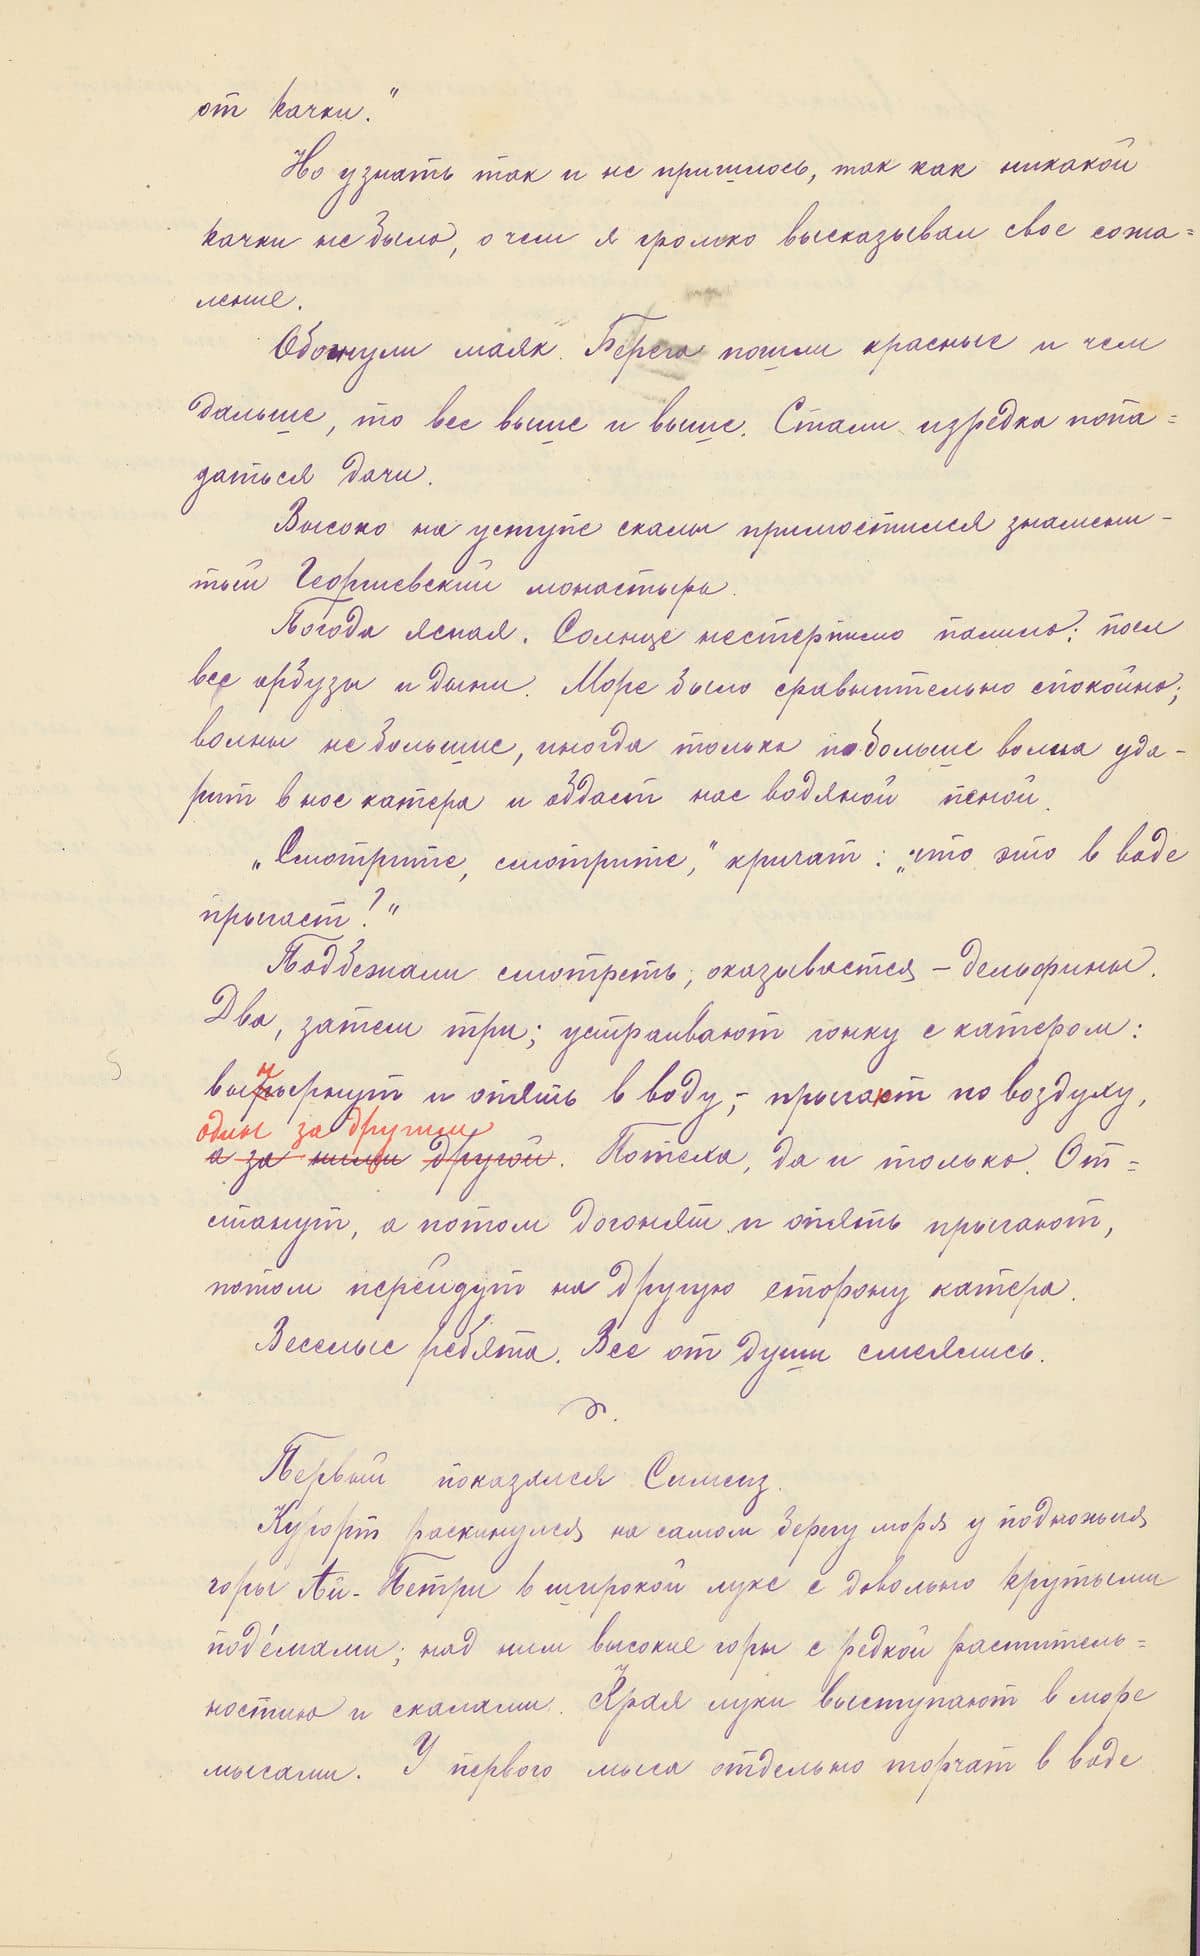 от качки."
Но узнать так и не пришлось, так как никакой
качки не было, о чем я громко высказывал свое сожа=
ление.
Обогнули маяк. Берега пошли красные и чем
дальше, то все выше и выше. Стали изредка попа=
даться дачи.
Высоко на уступе скалы примостился знамени-
тый Георгиевский монастырь.
Погода ясная. Солнце нестерпимо палило; поел
все арбузы и дыни. Море было сравнительно спокойно;
волны не большие, иногда только побольше волна уда-
рит в нос катера и обдаст нас водяной пеной.
„Смотрите, смотрите," кричат: „что это в воде
прыгает?"
Подбежали смотреть, оказывается - дельфины.
Два, затем три; устраивают гонку с катером:
вынырнут и опять в воду, - прыгают по воздуху,
один за другим
а за ними другой. Потеха, да и только. От=
станут, а потом догонят и опять прыгают,
потом перейдут на другую сторону катера.
Веселые ребята. Все от души смеялись.
Первый показался Симеиз.
Курорт раскинулся на самом берегу моря у подножия
горы Ай-Петри в широкой луке с довольно крутыми
подъемами; над ним высокие горы с редкой раститель=
ностию и скалами. Края луки выступают в море
мысами. У первого мыса отдельно торчат в воде